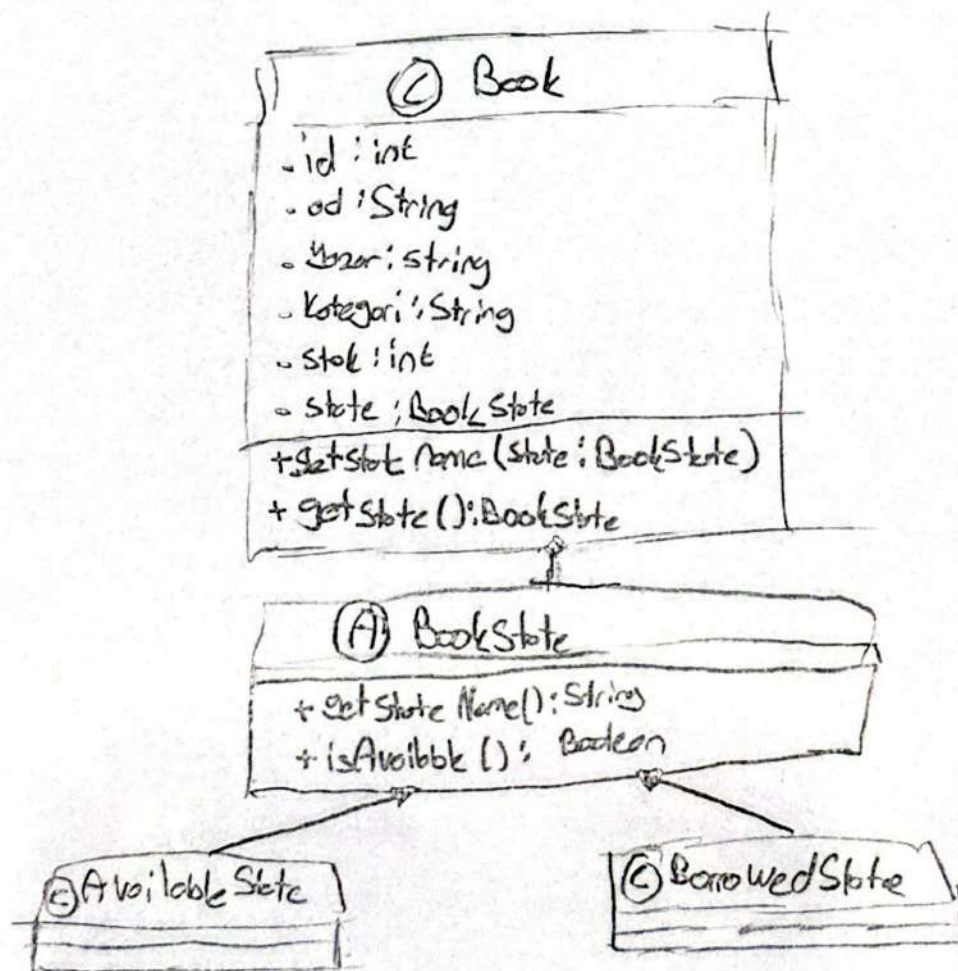 C Book
- id : int
- ad : String
- Yazar : String
- Kategori : String
- stok : int
- state : BookState
+ setState Name (state : BookState)
+ getState () : BookState
A BookState
+ getState Name() : String
+ isAvailable () : Boolean
C AvailableState
C BorrowedState